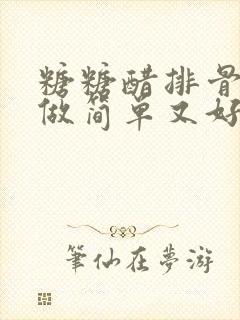 糖糖醋排骨
做简单又好
筆仙在夢游